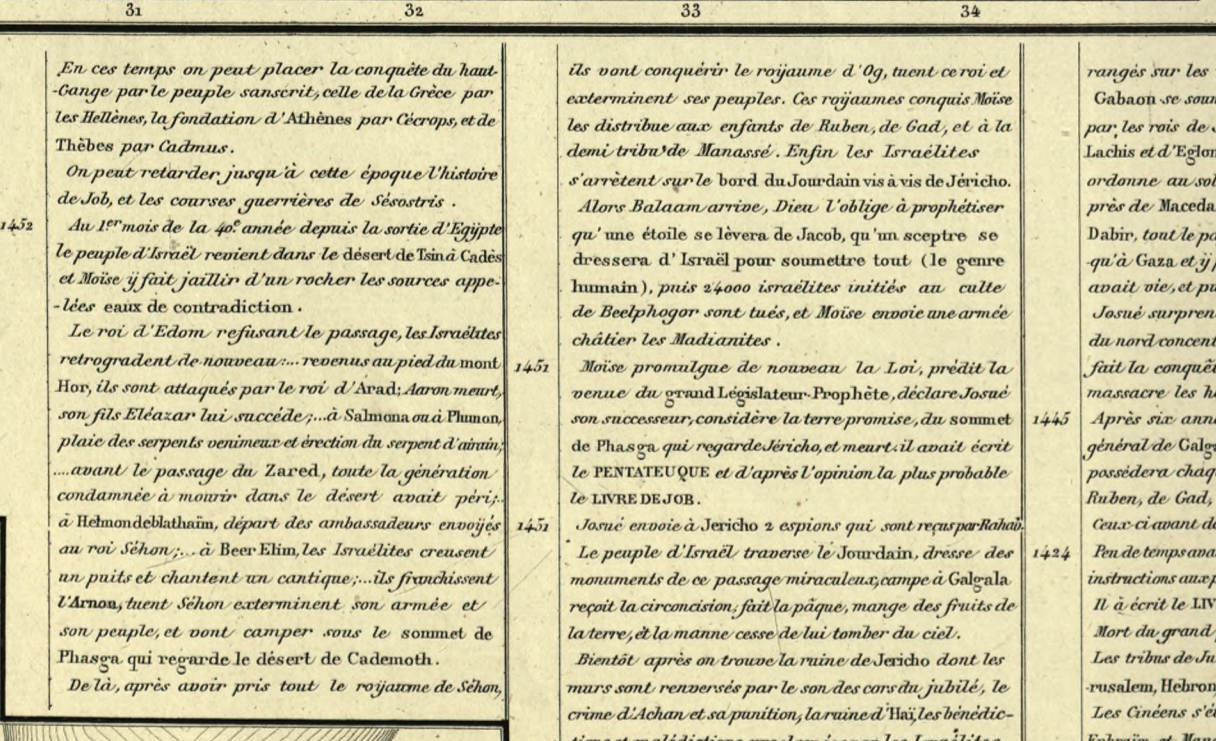 31 32 33 34
En ces temps on peut placer la conquête du haut-
-Gange par le peuple sanscrit, celle de la Grèce par
les Hellènes, la fondation d'Athènes par Cécrops, et de
Thèbes par Cadmus.
On peut retarder jusqu'à cette époque l'histoire
de Job, et les courses guerrières de Sésostris.
1452 Au 1er mois de la 40e année depuis la sortie d'Egÿpte
le peuple d'Israël revient dans le désert de Tsin à Cadès
et Moïse ÿ fait jaillir d'un rocher les sources appe-
-lées eaux de contradiction.
Le roi d'Edom refusant le passage, les Israélites
retrogradent de nouveau:... revenus au pied du mont
Hor, ils sont attaqués par le roi d'Arad; Aaron meurt,
son fils Eléazar lui succéde;...à Salmona ou à Phunon,
plaie des serpents venimeux et érection du serpent d'airain;
....avant le passage du Zared, toute la génération
condamnée à mourir dans le désert avait péri;..
à Helmondeblathaïm, départ des ambassadeurs envoÿés
au roi Séhon;... à Beer Elim, les Israélites creusent
un puits et chantent un cantique;...ils franchissent
l'Arnon, tuent Séhon exterminent son armée et
son peuple, et vont camper sous le sommet de
Phasga qui regarde le désert de Cademoth.
De là, après avoir pris tout le roÿaume de Séhon,
ils vont conquérir le roÿaume d'Og, tuent ce roi et
exterminent ses peuples. Ces roÿaumes conquis Moïse
les distribue aux enfants de Ruben, de Gad, et à la
demi tribu de Manassé. Enfin les Israélites
s'arrètent sur le bord du Jourdain vis à vis de Jéricho.
Alors Balaam arrive, Dieu l'oblige à prophétiser
qu'une étoile se lèvera de Jacob, qu'un sceptre se
dressera d'Israël pour soumettre tout (le genre
humain), puis 24000 israélites initiés au culte
de Beelphogor sont tués, et Moïse envoie une armée
châtier les Madianites.
1451 Moïse promulgue de nouveau la Loi, prédit la
venue du grand Législateur-Prophète, déclare Josué
son successeur, considère la terre promise, du sommet
de Phasga qui regarde Jéricho, et meurt: il avait écrit
le PENTATEUQUE et d'après l'opinion la plus probable
le LIVRE DE JOB.
1451 Josué envoie à Jericho 2 espions qui sont reçus par Rahab.
Le peuple d'Israël traverse le Jourdain, dresse des
monuments de ce passage miraculeux, campe à Galgala
reçoit la circoncision, fait la pâque, mange des fruits de
la terre, et la manne cesse de lui tomber du ciel.
Bientôt après on trouve la ruine de Jericho dont les
murs sont renversés par le son des cors du jubilé, le
crime d'Achan et sa punition, la ruine d'Haï, les bénédic-
rangés sur les
Gabaon se soum
par les rois de
Lachis et d'Eglon
ordonne au sol
près de Maceda
Dabir, tout le pa
qu'à Gaza et ÿ p
avait vie, et pu
Josué surpren
du nord concent
fait la conquêt
massacre les h
1445 Après six anné
général de Galg
possédera chaq
Ruben, de Gad,
Ceux-ci avant de
1424 Peu de temps ava
instructions aux p
Il à écrit le LIV
Mort du grand
Les tribus de Ju
-rusalem, Hebron
Les Cinéens s'é